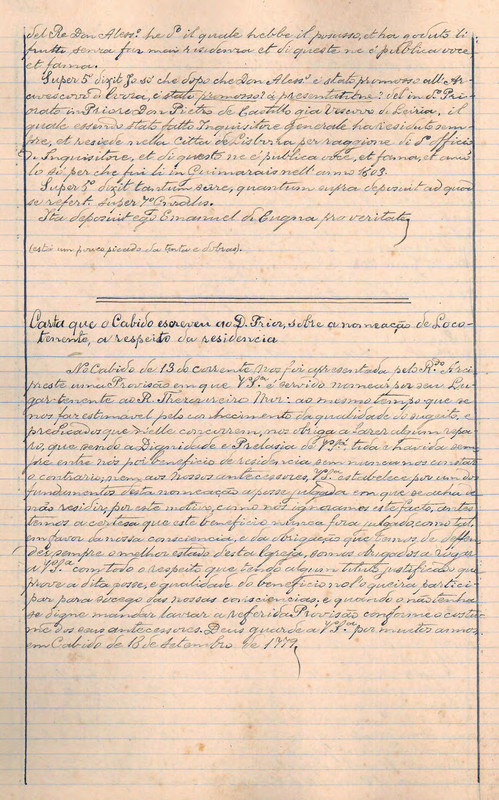 del Re Don Aless.º he d.º il quale hebbe il possesso, et ha goduto li
frutti senza far mai residenza et di queste ne é publica voce
et fama.
Super 5º dixit Io só che dopo che Don Aless.º é stato promosso all'Ar
civescovo d'Evora, é stato promosso à presentatione del in d.º Pri
orato in Priore Don Pietro de Castillo gia Vescovo de Leiria, il
quale essendo stato fatto Inquisitore Generale ha residuto sem
pre, et resiede nella Cittá de Lisbona per raggione di d.º officio
di Inquisitore, et di questo ne é publica voce, et fama, et anco
lo só per che fui li in Guimarais nell'anno 1603.
Super 5º dixit tantum scire, quantum supra deposuit ad quae
se refert. Super
Ita deposuit ego Emanuel de Cugna pro veritate
(está um pouco picado da tinta e dobras).
Carta que o Cabido escreveu ao D. Prior, sobre a nomeação de Loco-
tenente, a respeito da residencia
No Cabido de 13 do corrente nos foi apresentada pelo R.do Arci
preste uma Provisão em que V. S.ria é servido nomear por seu Lu
gar-tenente ao R. Thezoureiro Mor: ao mesmo tempo que se
nos faz estimavel pelo conhecimento da qualidade do sugeito, e
predicados que n'elle concorrem, nos obriga a fazer algum repa
ro, que sendo a Dignidade e Prelasia de V. S.ria tida e havida sem
pre entre nós por beneficio de residencia, sem nunca nos constar
o contrario, nem aos nossos antecessores, V. S.ria estabelece por um dos
fundamentos desta nomeação a posse julgada em que se acha de
não residir, por este motivo, e como nós ignoramos este facto, antes
temos a certesa que este beneficio nunca fora julgado como tal,
em favor da nossa consciencia, e da obrigação que temos de deffen
der sempre o melhor estado d'esta Igreja, somos obrigados a rogar
a V. S.ria com todo o respeito que tendo algum titulo justificado que
prove a dita posse, e qualidade do beneficio nol-o queira partici
par para socego das nossas consciencias, e quando o não tenha
se digne mandar lavrar a referida Provisão conforme o costu
me dos seus antecessores. Deus guarde a V. S.ria por muitos annos,
em Cabido de 18 de Setembro de 1779